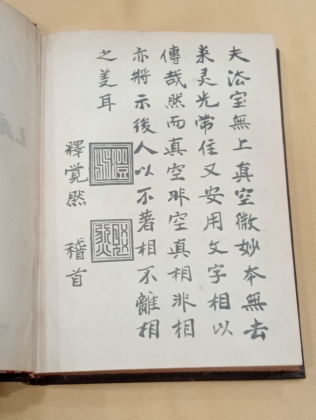 夫法宝無上真空微妙本無去
来灵光常住又安用文字相以
傳哉然而真空非空真相非相
亦將示後人以不著相不離相
之義耳
釋覺然 稽首